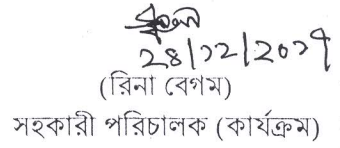 ২৪/১২/২০১৭
(রিনা বেগম)
সহকারী পরিচালক (কার্যক্রম)